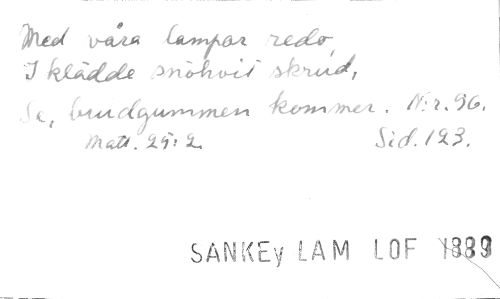 Med våra lampor redo,
I klädde snöhvit skrud,
Se, brudgummen kommer. N:r. 96.
Matt. 25:2. Sid. 123.
SANKEy LAM LOF 1889